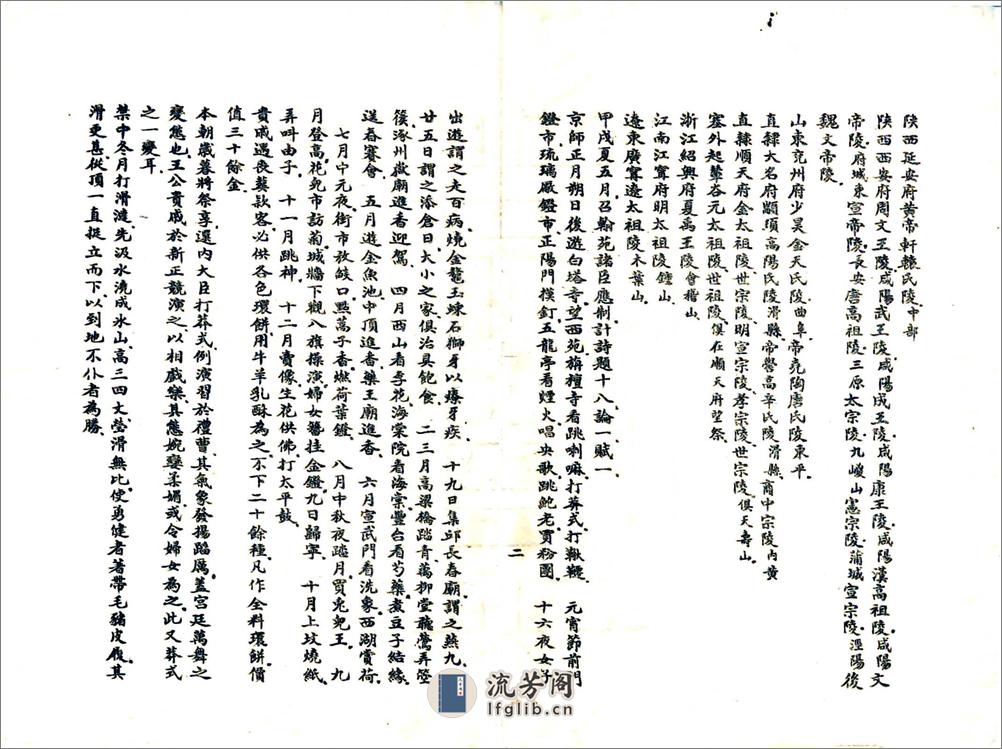 陝西延安府黃帝軒轅氏陵中部
陝西西安府周文王陵咸陽武王陵咸陽成王陵咸陽康王陵咸陽漢高祖陵咸陽文
帝陵府城東宣帝陵長安唐高祖陵三原太宗陵九嵕山憲宗陵蒲城宣宗陵涇陽後
魏文帝陵
山東兗州府少昊金天氏陵曲阜帝堯陶唐氏陵東平
直隸大名府顓頊高陽氏陵滑縣帝嚳高辛氏陵滑縣商中宗陵內黃
直隸順天府金太祖陵世宗陵明宣宗陵孝宗陵世宗陵俱天壽山
塞外起輦谷元太祖陵世祖陵俱在順天府望祭
浙江紹興府夏禹王陵會稽山
江南江寧府明太祖陵鍾山
遼東廣寧遼太祖陵木葉山
甲戌夏五月召翰苑諸臣應制計詩題十八論一賦一
京師正月朔日後遊白塔寺望西苑旃檀寺看跳喇嘛打莽式打鞦韆 元宵節前門
鐙市琉璃廠鐙市正陽門摸釘五龍亭看煙火唱央歌跳鮑老買粉團 十六夜女子
二
出遊謂之走百病燒金鰲玉蝀石獅牙以療牙疾 十九日集邱長春廟謂之燕九
廿五日謂之添倉日大小之家俱治具飽食 二三月高梁橋踏青萬柳堂聽鶯弄箜
篌涿州嶽廟進香迎駕 四月西山看李花海棠院看海棠豐台看芍藥煮豆子結緣
送春賽會 五月遊金魚池中頂進香藥王廟進香 六月宣武門看洗象西湖賞荷
七月中元夜街市放燄口㸃萬子香燃荷葉鐙 八月中秋夜踏月買兎兒王 九
月登高花兒市訪菊城牆下觀八旗操演婦女簪挂金鐙九日歸寧 十月上坟燒紙
弄叫由子 十一月跳神 十二月賣像生花供佛打太平鼓
貴戚遇喪葬款客必供各色環餅用牛羊乳酥為之不下二十餘種凡作全料環餅價
值三十餘金
本朝歲暮將祭享選內大臣打莽式例演習於禮曹其氣象發揚蹈厲蓋宮廷萬舞之
變態也王公貴戚於新正競演之以相戲樂其態婉孌柔媚或令婦女為之此又莽式
之一變耳
禁中冬月打滑㳠先汲水澆成氷山高三四丈瑩滑無比使勇健者著帶毛豬皮履其
滑更甚從頂一直挺立而下以到地不仆者為勝
流芳阁
lfglib.cn